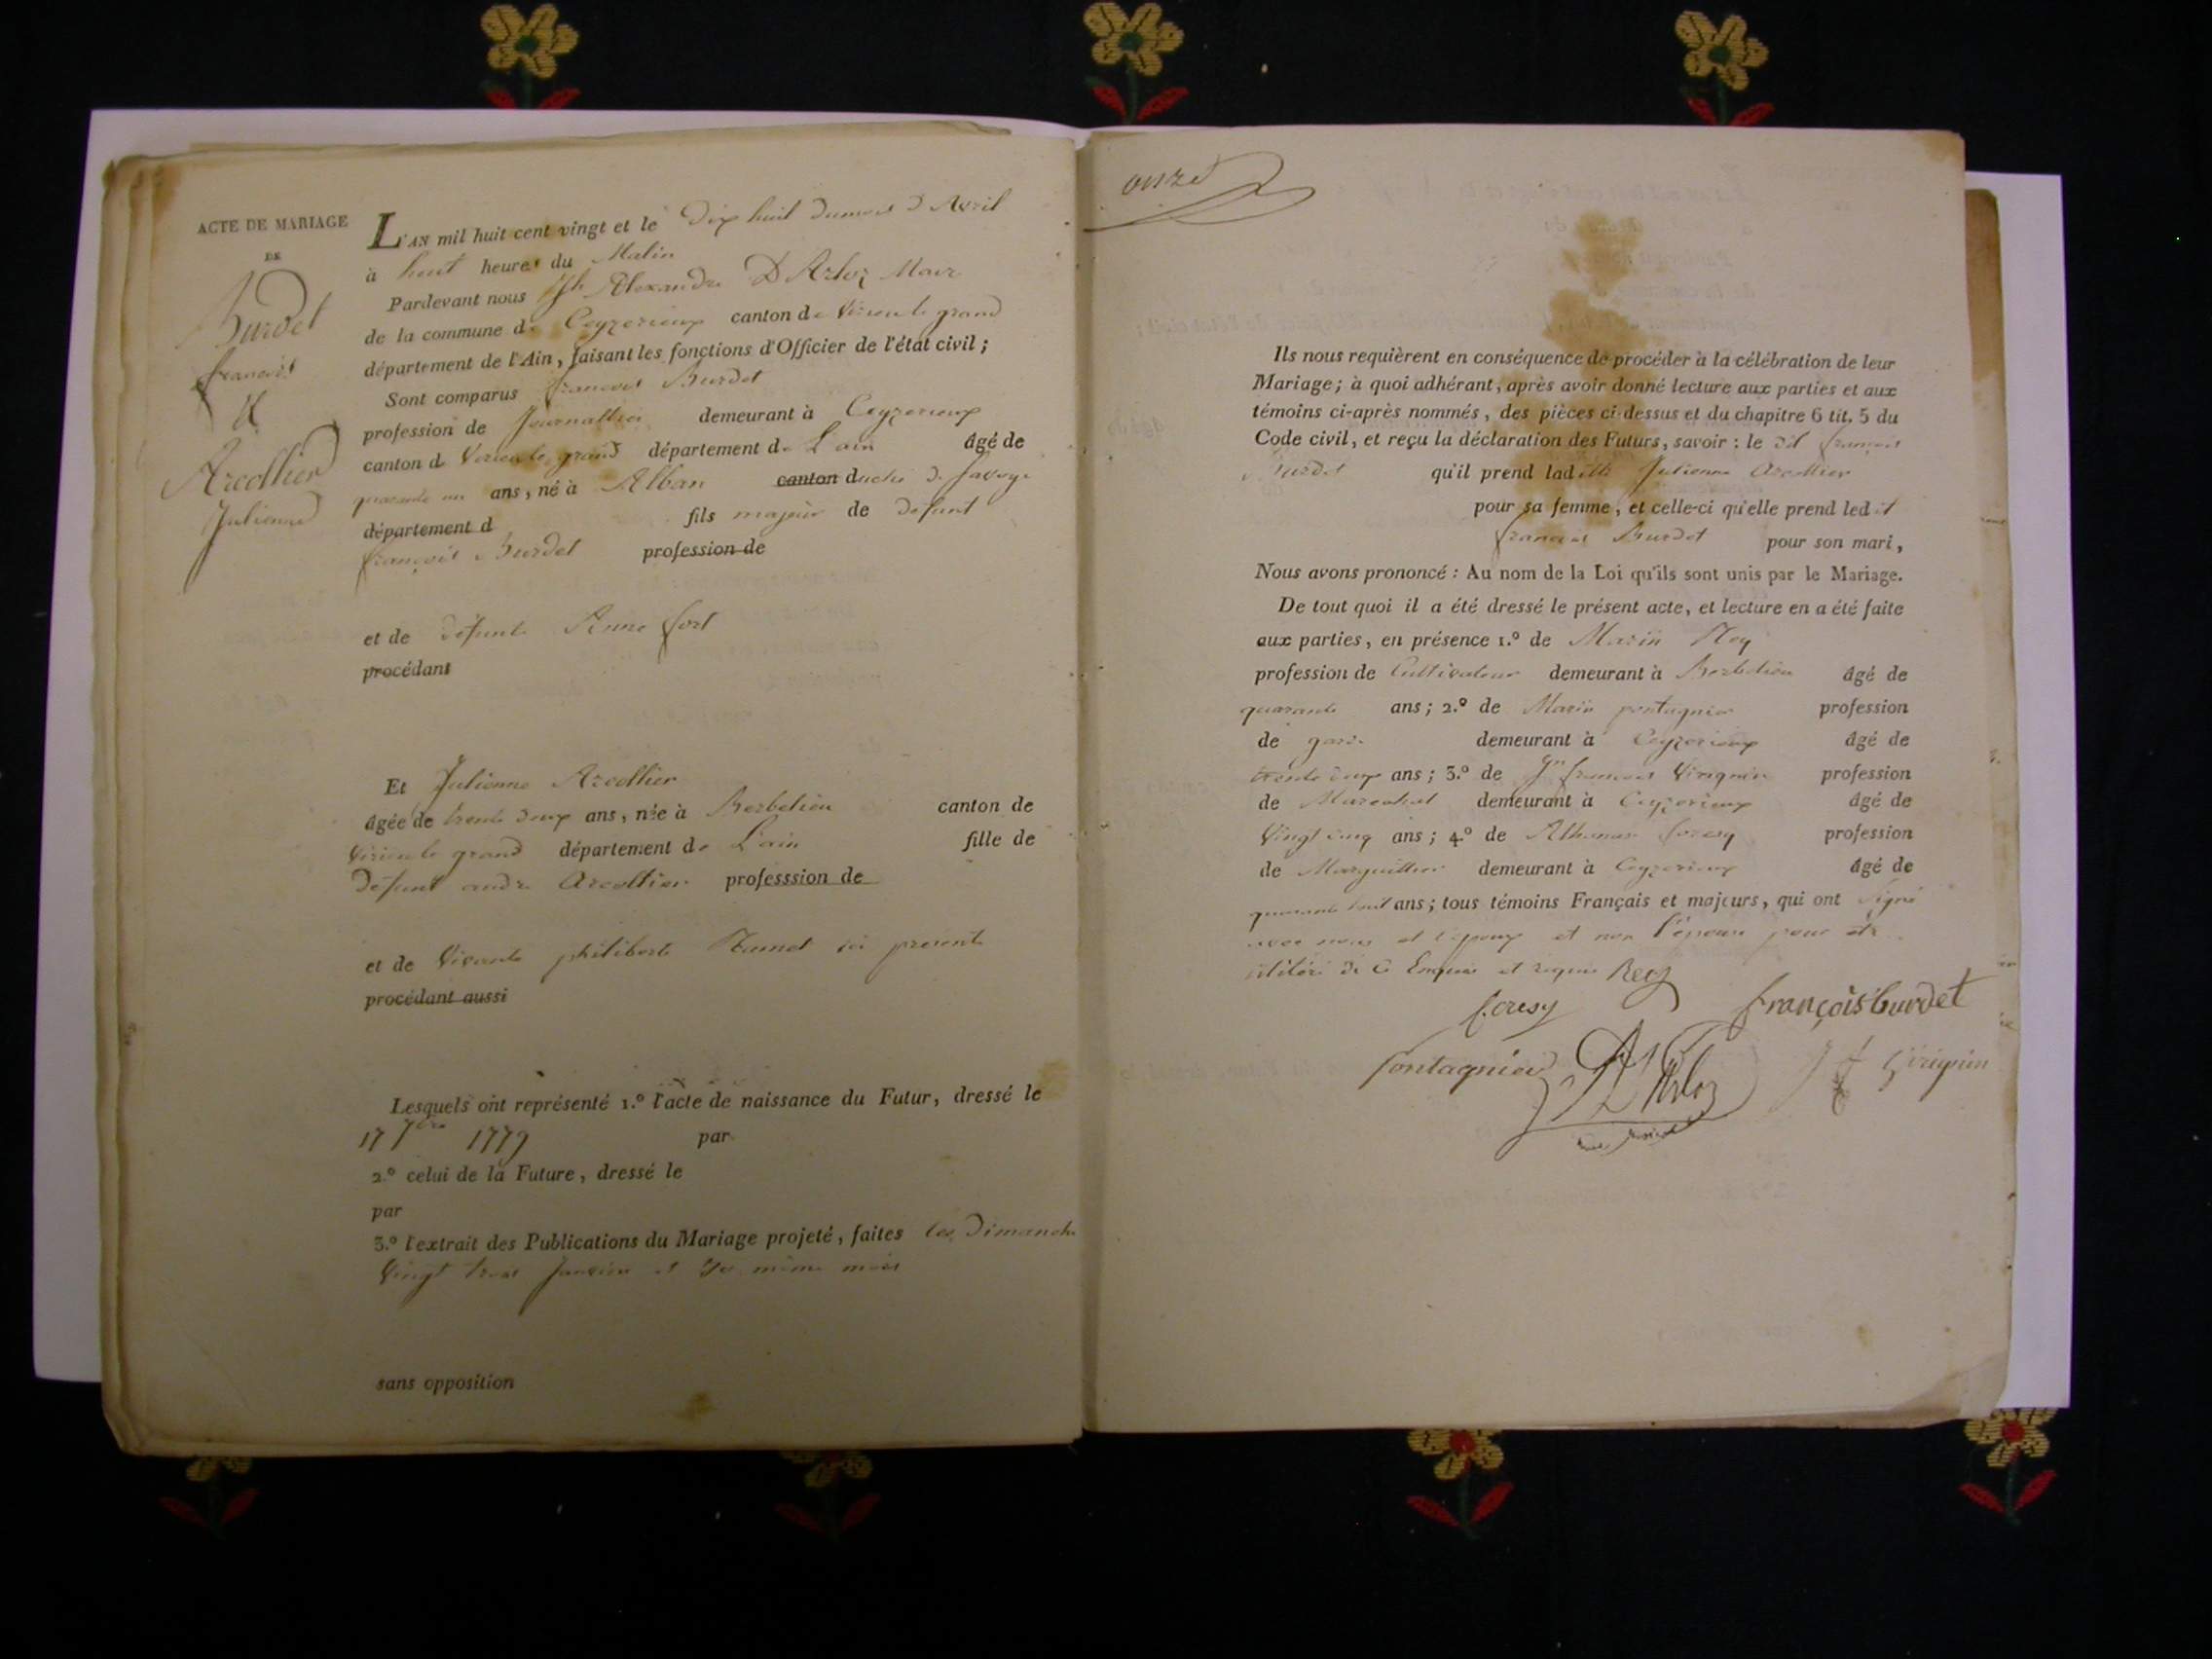 ACTE DE MARIAGE
DE
Burdet
françois
&
Arcollier
Julienne
L'AN mil huit cent vingt et le Dix huit du mois d'Avril
à heures du Matin
Pardevant nous Jh Alexandre D'Arloz Maire
de la commune de Ceyzerieux canton de Virieu le grand
département de l'Ain, faisant les fonctions d'Officier de l'état civil;
Sont comparus francois Burdet
profession de Journallier demeurant à Ceyzerieux
canton d Virieu le grand département de L'ain âgé de
quarante un ans, né à Alban canton duché de Savoye
département d fils majeur de defunt
françois Burdet profession de
et de defunte Anne fort
procédant
Et Julienne Arcollier
âgée de trente deux ans, née à canton de
Virieu le grand département de L'ain fille de
defunt andré Arcollier professsion de
et de Vivante philiberte ici presente
procédant aussi
Lesquels ont représenté 1.º l'acte de naissance du Futur, dressé le
17 7bre 1779 par
2.º celui de la Future, dressé le
par
3.º l'extrait des Publications du Mariage projeté, faites les Dimanche
Vingt trois Janvier et même mois
sans opposition
onze
Ils nous requièrent en conséquence de procéder à la célébration de leur
Mariage; à quoi adhérant, après avoir donné lecture aux parties et aux
témoins ci-après nommés, des pièces ci-dessus et du chapitre 6 tit. 5 du
Code civil, et reçu la déclaration des Futurs, savoir: le dit françois
Burdet qu'il prend ladite Julienne Arcollier
pour sa femme, et celle-ci qu'elle prend ledit
francois Burdet pour son mari,
Nous avons prononcé: Au nom de la Loi qu'ils sont unis par le Mariage.
De tout quoi il a été dressé le présent acte, et lecture en a été faite
aux parties, en présence 1.º de Marin Rey
profession de Cultivateur demeurant à âgé de
quarante ans; 2.º de Marin pontagnier profession
de garde demeurant à Ceyzerieux âgé de
trente deux ans; 3.º de Jn francois Virignin profession
de Marechal demeurant à Ceyzerieux âgé de
Vingt cinq ans; 4.º de profession
de Marguillier demeurant à Ceyzerieux âgé de
quarante huit ans; tous témoins Français et majeurs, qui ont signé
avec nous et l'epoux et non l'épouse pour etre
illitéré de ce Enquis et requis Rey
françois burdet
pontagnier
D'Arloz
J f Virignin